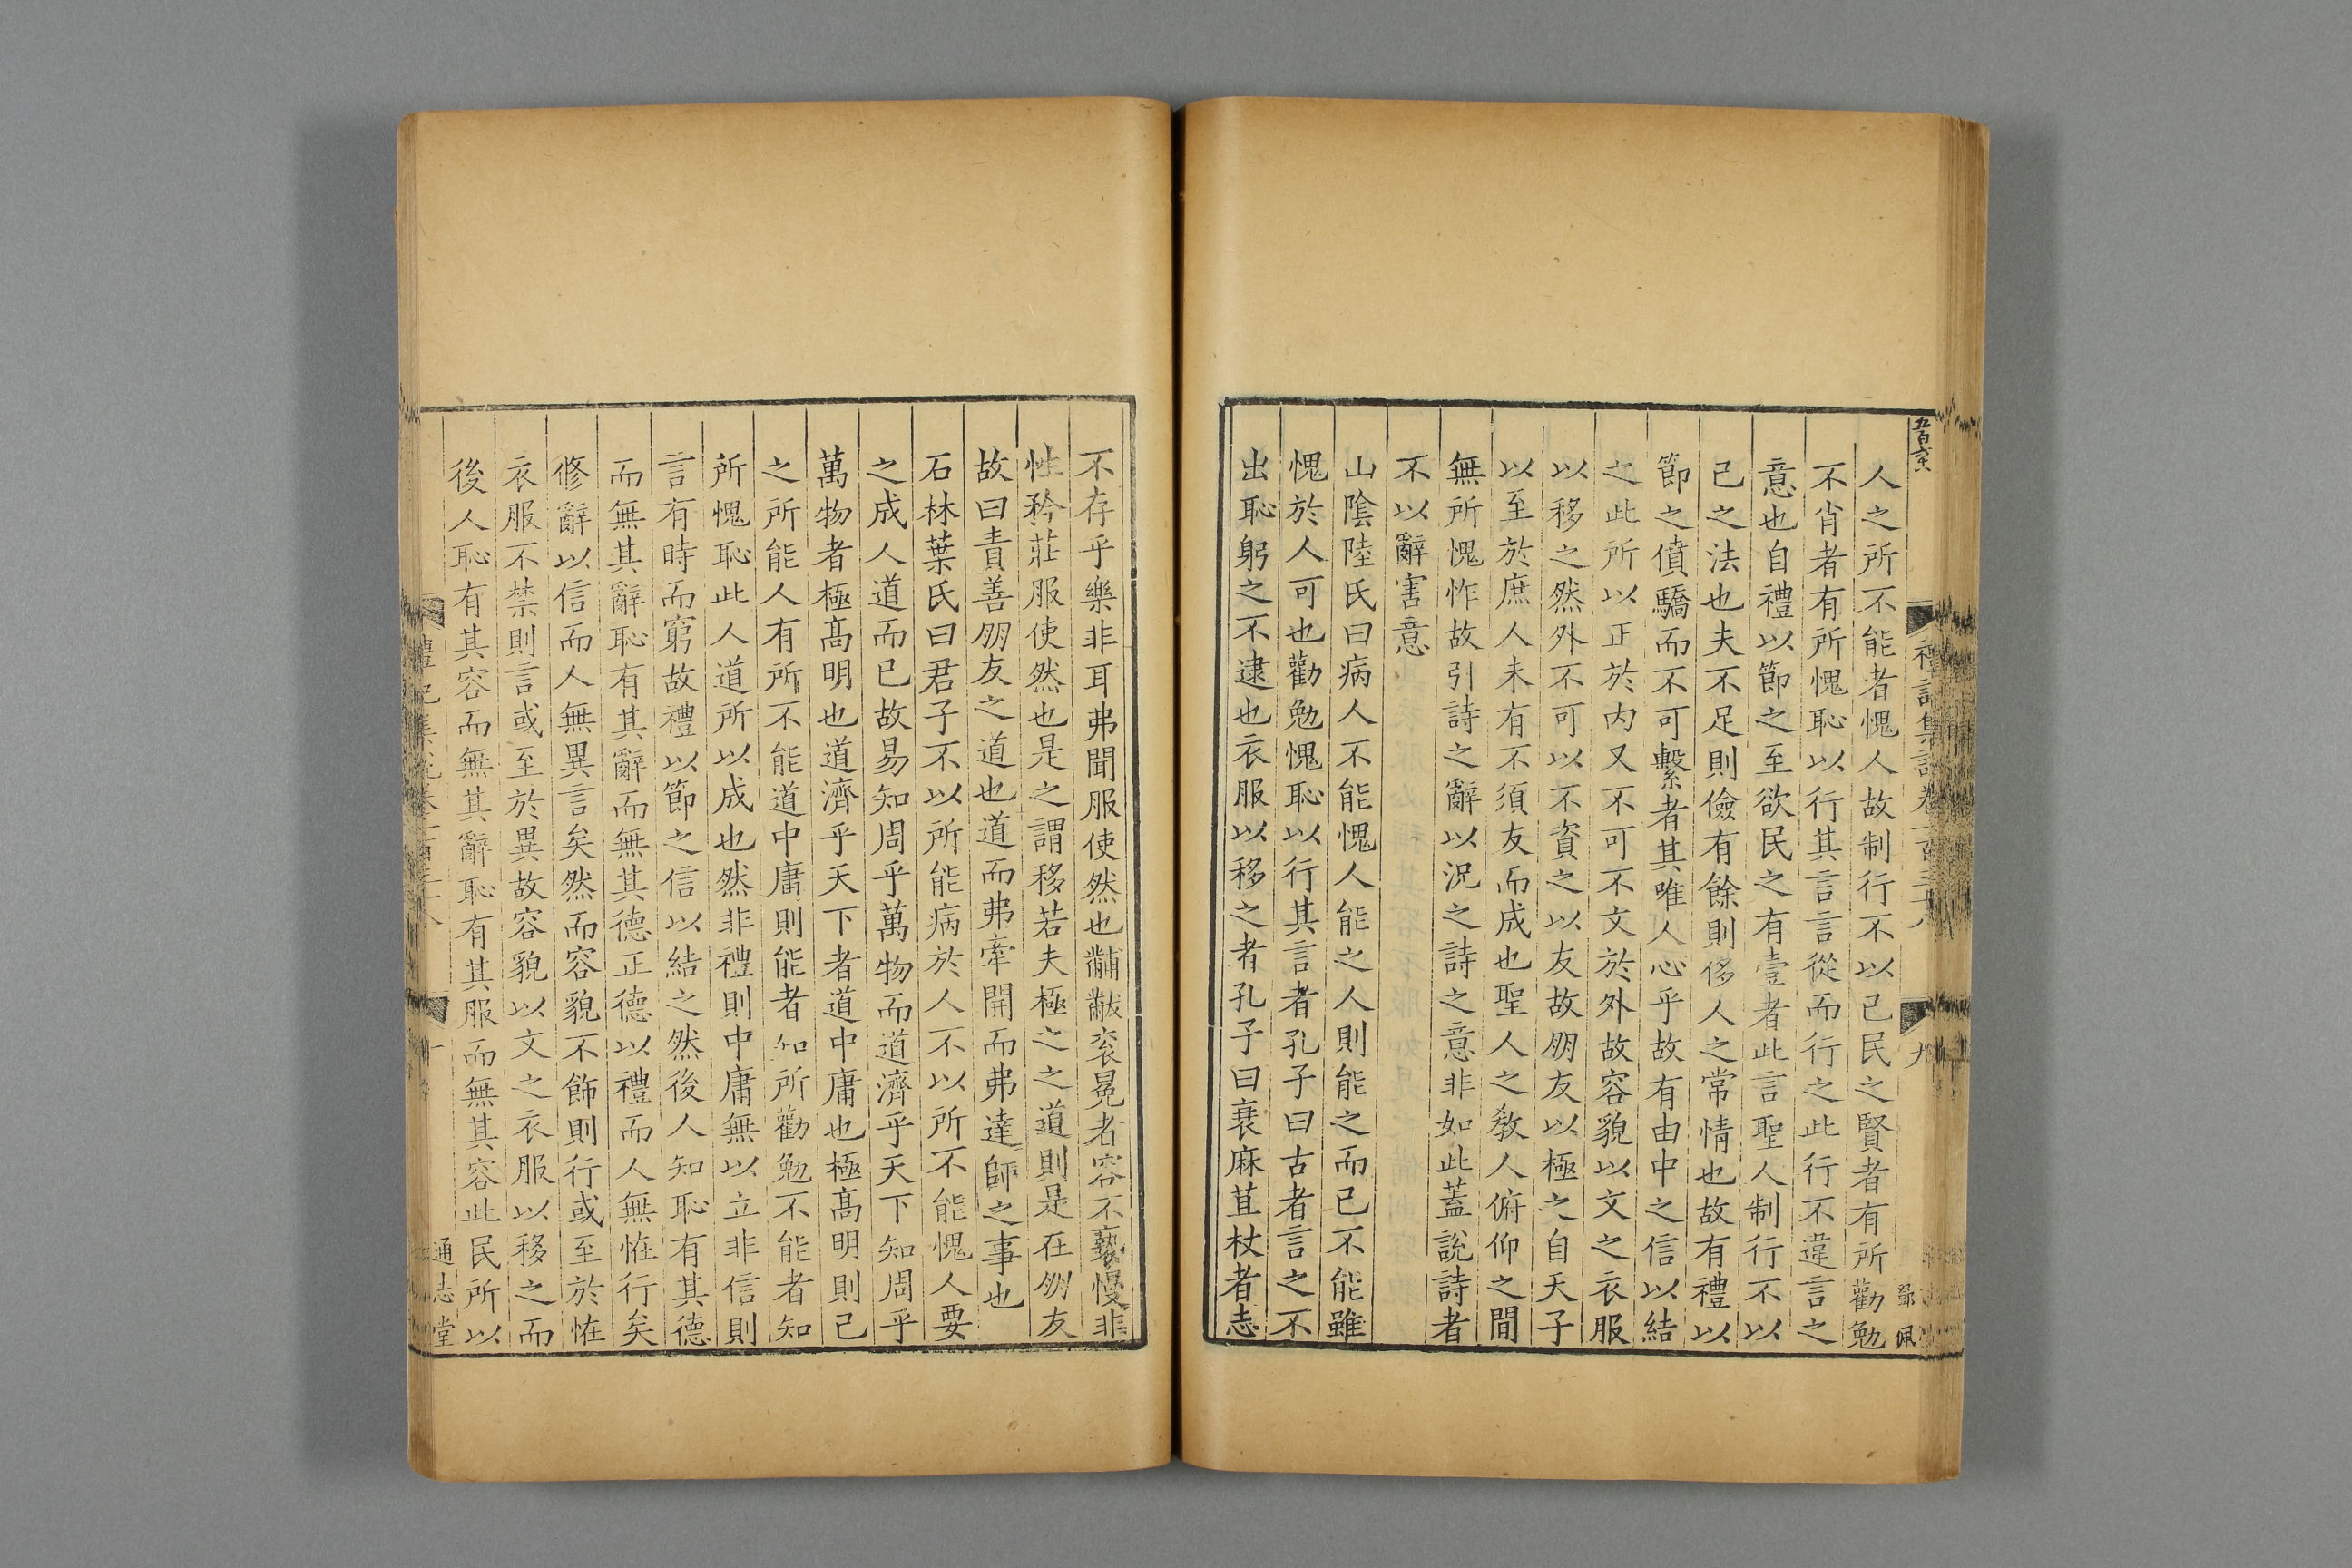 人之所不能者愧人故制行不以己民之賢者有所勸勉
不肖者有所愧恥以行其言言從而行之此行不違言之
意也自禮以節之至欲民之有壹者此言聖人制行不以
己之法也夫不足則儉有餘則侈人之常情也故有禮以
節之僨驕而不可繫者其唯人心乎故有由中之信以結
之此所以正於内又不可不文於外故容貌以文之衣服
以移之然外不可以不資之以友故朋友以極之自天子
以至於庶人未有不須友而成也聖人之教人俯仰之間
無所愧怍故引詩之辭以況之詩之意非如此蓋說詩者
不以辭害意
山陰陸氏曰病人不能愧人能之人則能之而已不能雖
愧於人可也勸勉愧恥以行其言者孔子曰古者言之不
出恥躬之不逮也衣服以移之者孔子曰衰麻苴杖者志
不存乎樂非耳弗聞服使然也黼黻衮冕者容不褻慢非
性矜莊服使然也是之謂移若夫極之之道則是在朋友
故曰責善朋友之道也道而弗牽開而弗達師之事也
石林葉氏曰君子不以所能病於人不以所不能愧人要
之成人道而已故易知周乎萬物而道濟乎天下知周乎
萬物者極高明也道濟乎天下者道中庸也極高明則己
之所能人有所不能道中庸則能者知所勸勉不能者知
所愧恥此人道所以成也然非禮則中庸無以立非信則
言有時而窮故禮以節之信以結之然後人知恥有其德
而無其辭恥有其辭而無其德正德以禮而人無恠行矣
修辭以信而人無異言矣然而容貌不飾則行或至於恠
衣服不禁則言或至於異故容貌以文之衣服以移之而
後人恥有其容而無其辭恥有其服而無其容此民所以
禮記集說卷一百三十八
十
通志堂